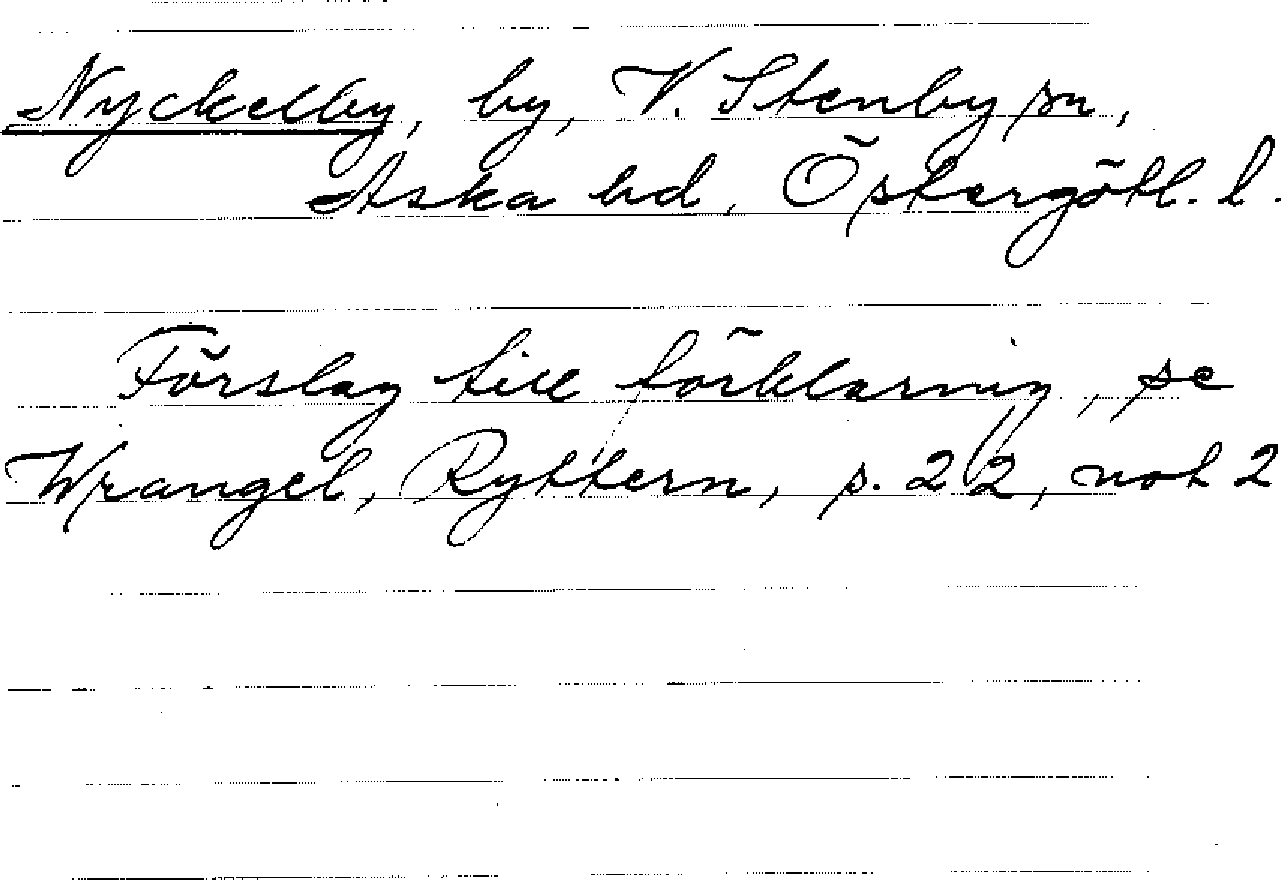 Nyckelby, by, V. Stenby sn,
Aska hd, Östergötl. l.
Förslag till förklaring, se
Wrangel, Ryttern, p. 22, not 2